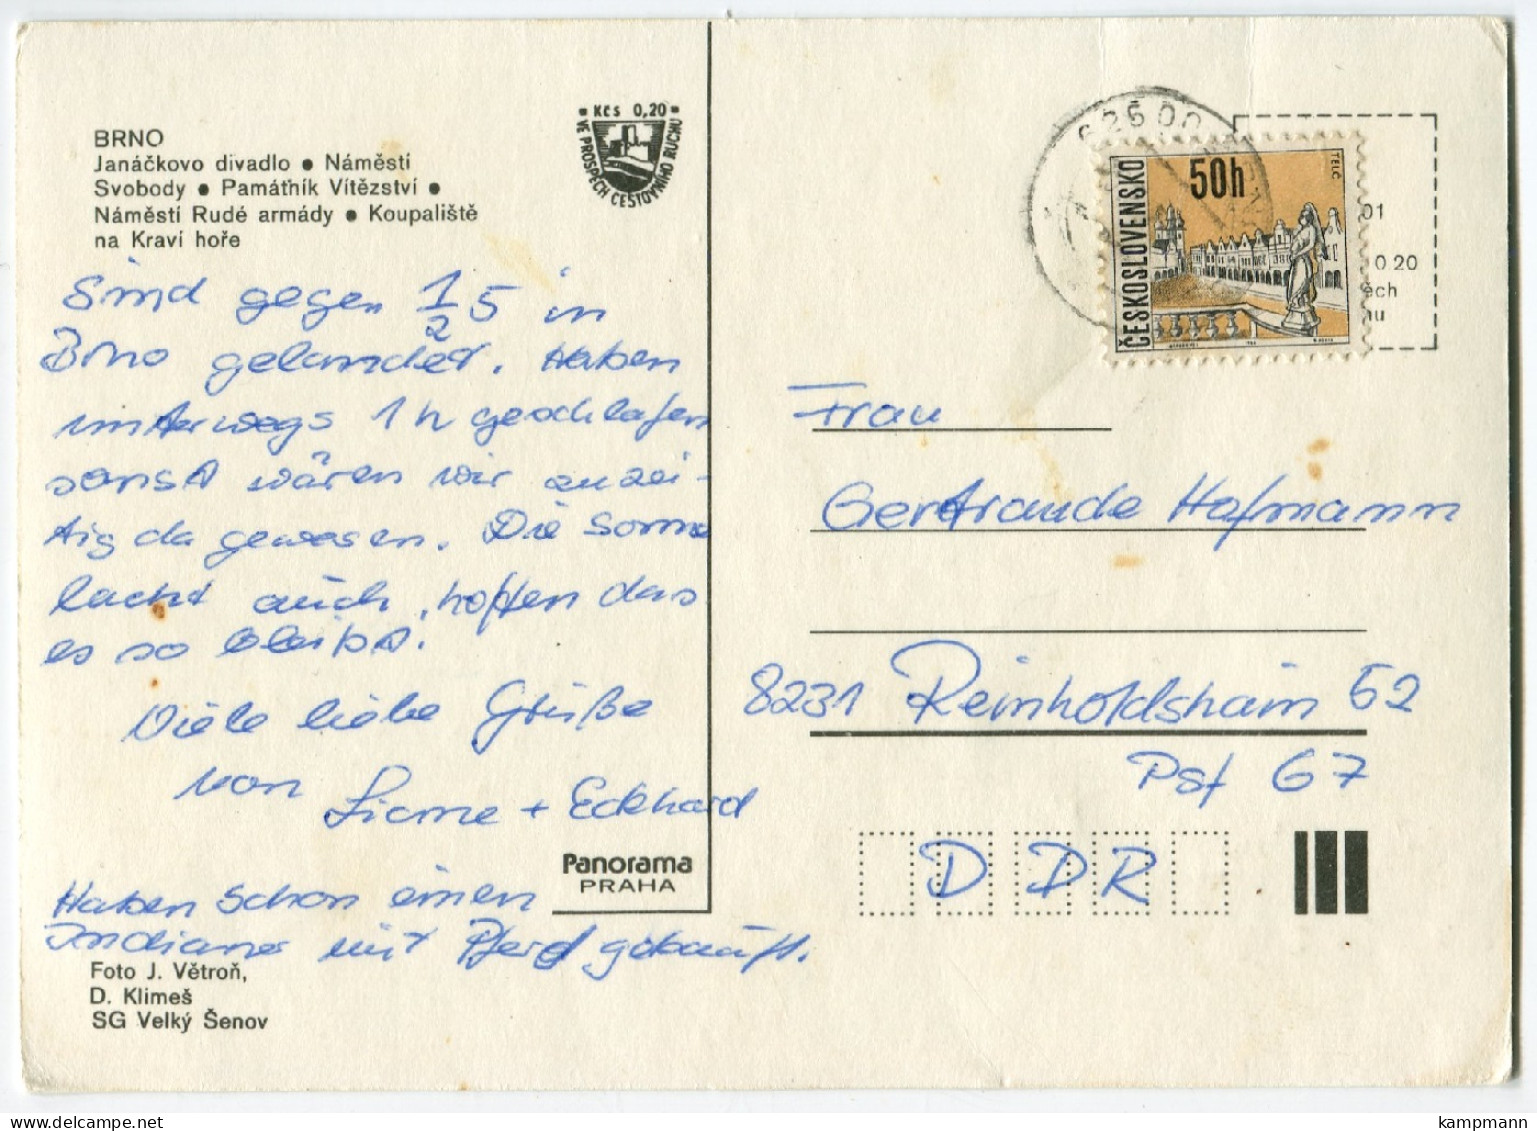 BRNO
Janáčkovo divadlo ● Náměstí
Svobody ● Památník Vítězství ●
Náměstí Rudé armády ● Koupaliště
na Kraví hoře
Kčs 0,20
VE PROSPĚCH CESTOVNÍHO RUCHU
Sind gegen 1/2 5 in
Brno gelandet. Haben
unterwegs 1 h geschlafen
sonst wären wir auzei-
tig da gewesen. Die Sonne
lacht auch, hoffen das
es so bleibt.
Viele liebe Grüße
von Liane + Eckhard
Panorama
PRAHA
Haben schon einen
Indianer mit Pferd gekauft.
Foto J. Větroň,
D. Klimeš
SG Velký Šenov
62600
ČESKOSLOVENSKO
50h
TELČ
01
0.20
ěch
hu
Frau
Gertraude Hofmann
8231 Reinholdshain 52
Psf 67
DDR
kampmann